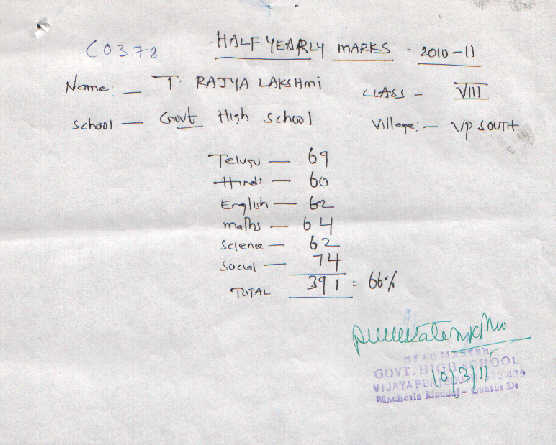 C0372 HALF YEARLY MARKS - 2010-11
Name: — T. RAJYA LAKSHMI CLASS - VIII
School — Govt High School Village: - VP SOUTH
Telugu — 69
Hindi — 60
English — 62
maths — 64
Science — 62
Social — 74
TOTAL 391 = 66%
HEADMASTER
GOVT. HIGH SCHOOL
10/3/11